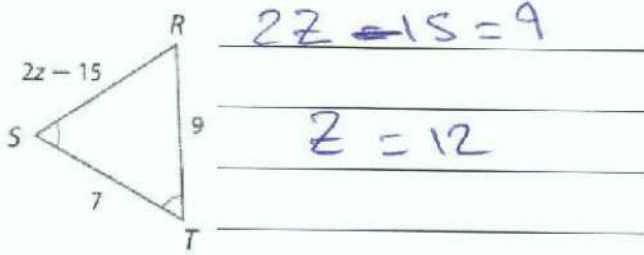 R
2z − 15
S
9
7
T
2Z - 15 = 9
Z = 12